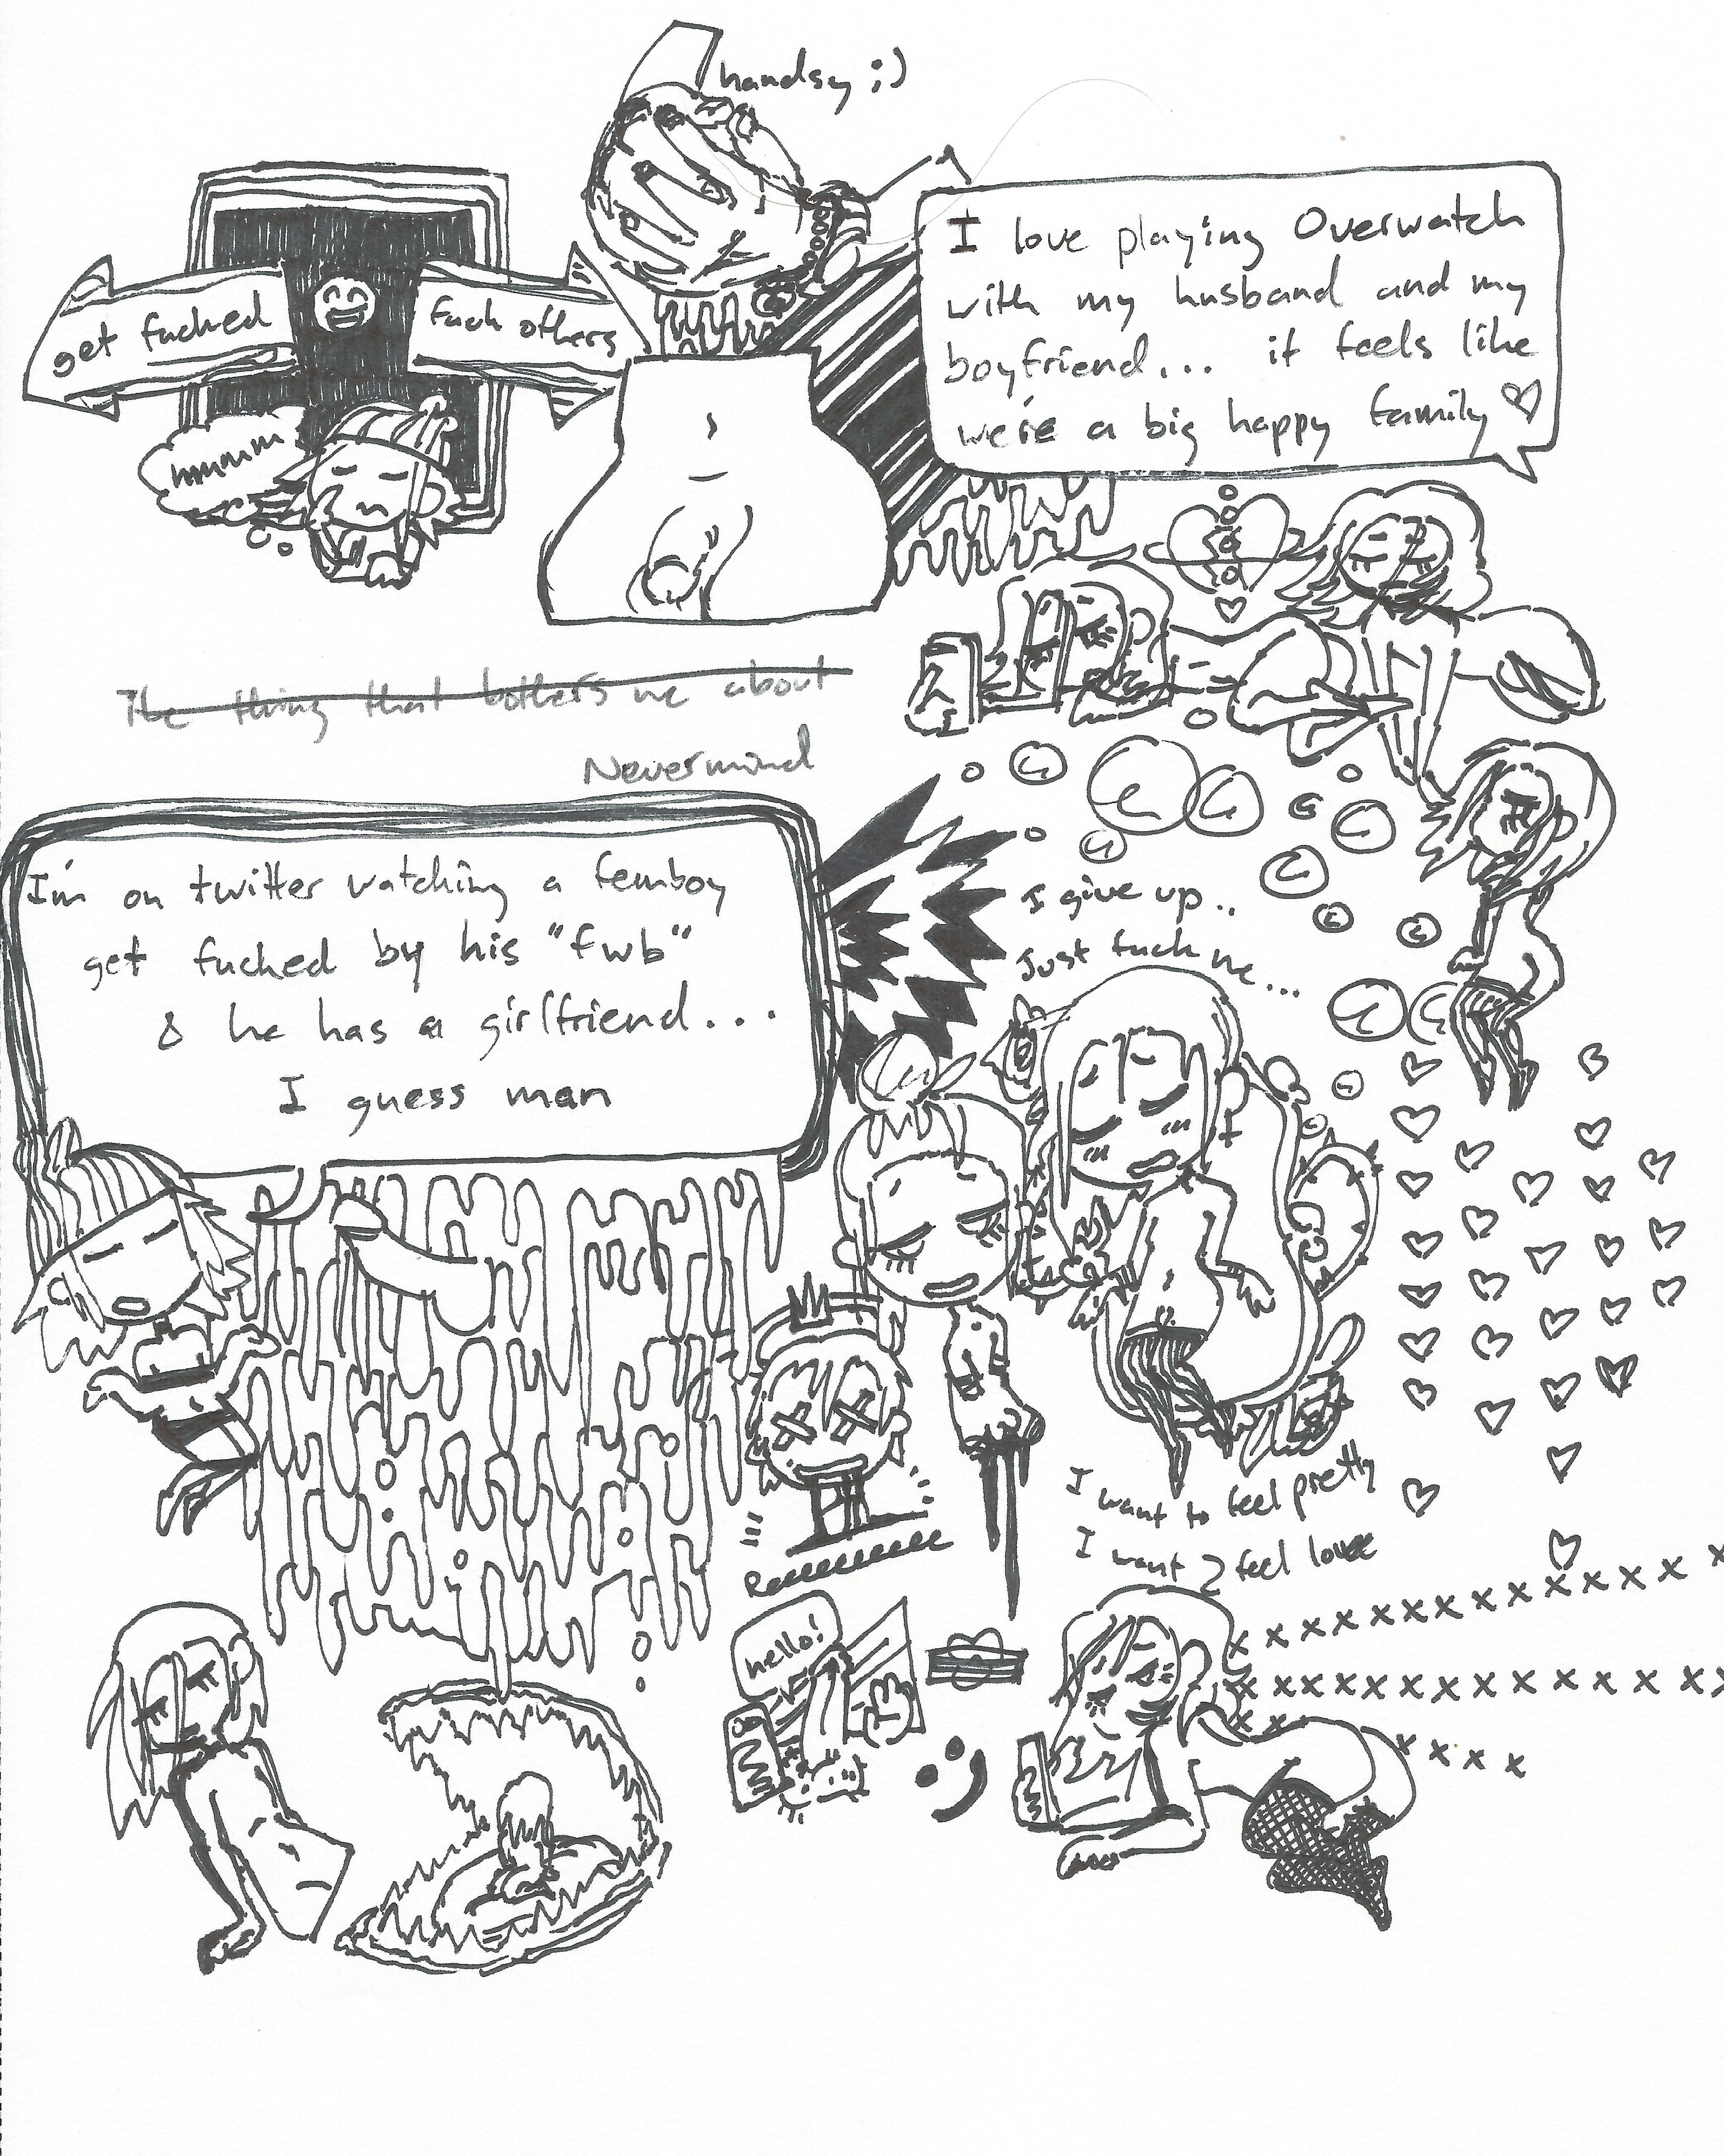 handsy ;)
get fucked
fuck others
hmmmm
I love playing Overwatch
with my husband and my
boyfriend... it feels like
we're a big happy family ♡
The thing that bothers me about
Nevermind
I'm on twitter watching a femboy
get fucked by his "fwb"
& he has a girlfriend...
I guess man
I give up..
Just fuck me...
I want to feel pretty
I want 2 feel love
hello!
x x x x x x x x x x x x x x
x x x x x x x x x x x x x x x
x x x x x x